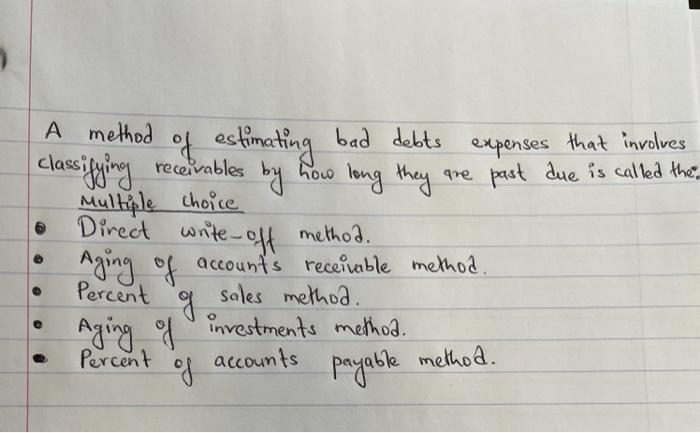 A method of estimating bad debts expenses that involves
classifying receivables by how long they are past due is called the:
Multiple choice
• Direct write-off method.
• Aging of accounts receivable method.
• Percent of sales method.
• Aging of investments method.
• Percent of accounts payable method.